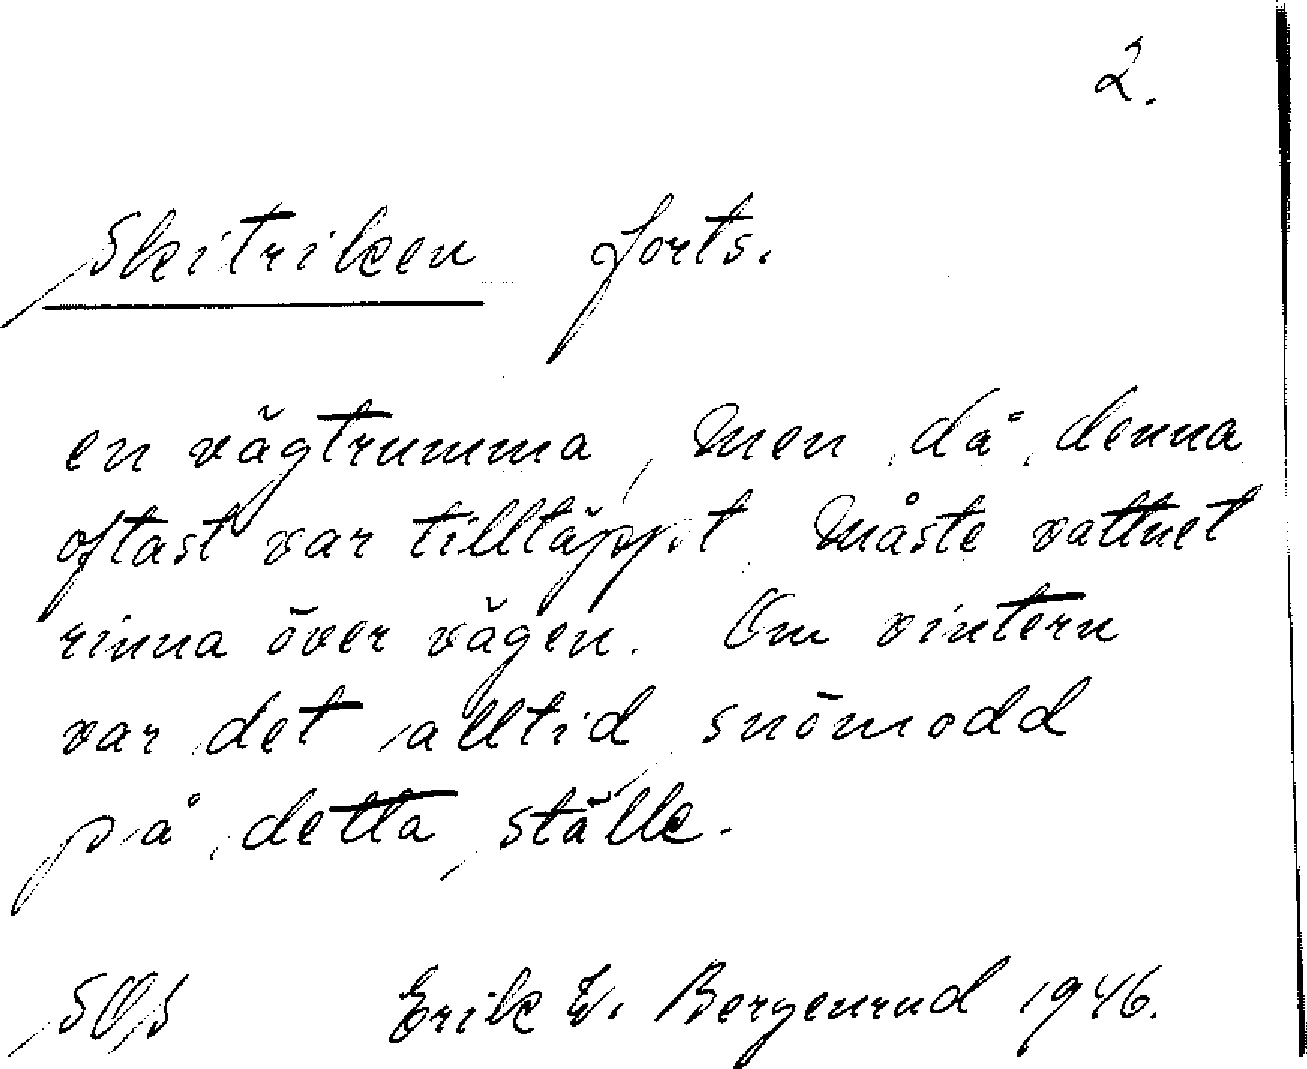 2.
Skitriken forts.
en vägtrumma, men då denna
oftast var tilltäppt måste vattnet
rinna över vägen. Om vintern
var det alltid snömodd
på detta ställe.
SOS Erik W. Bergenrud 1946.